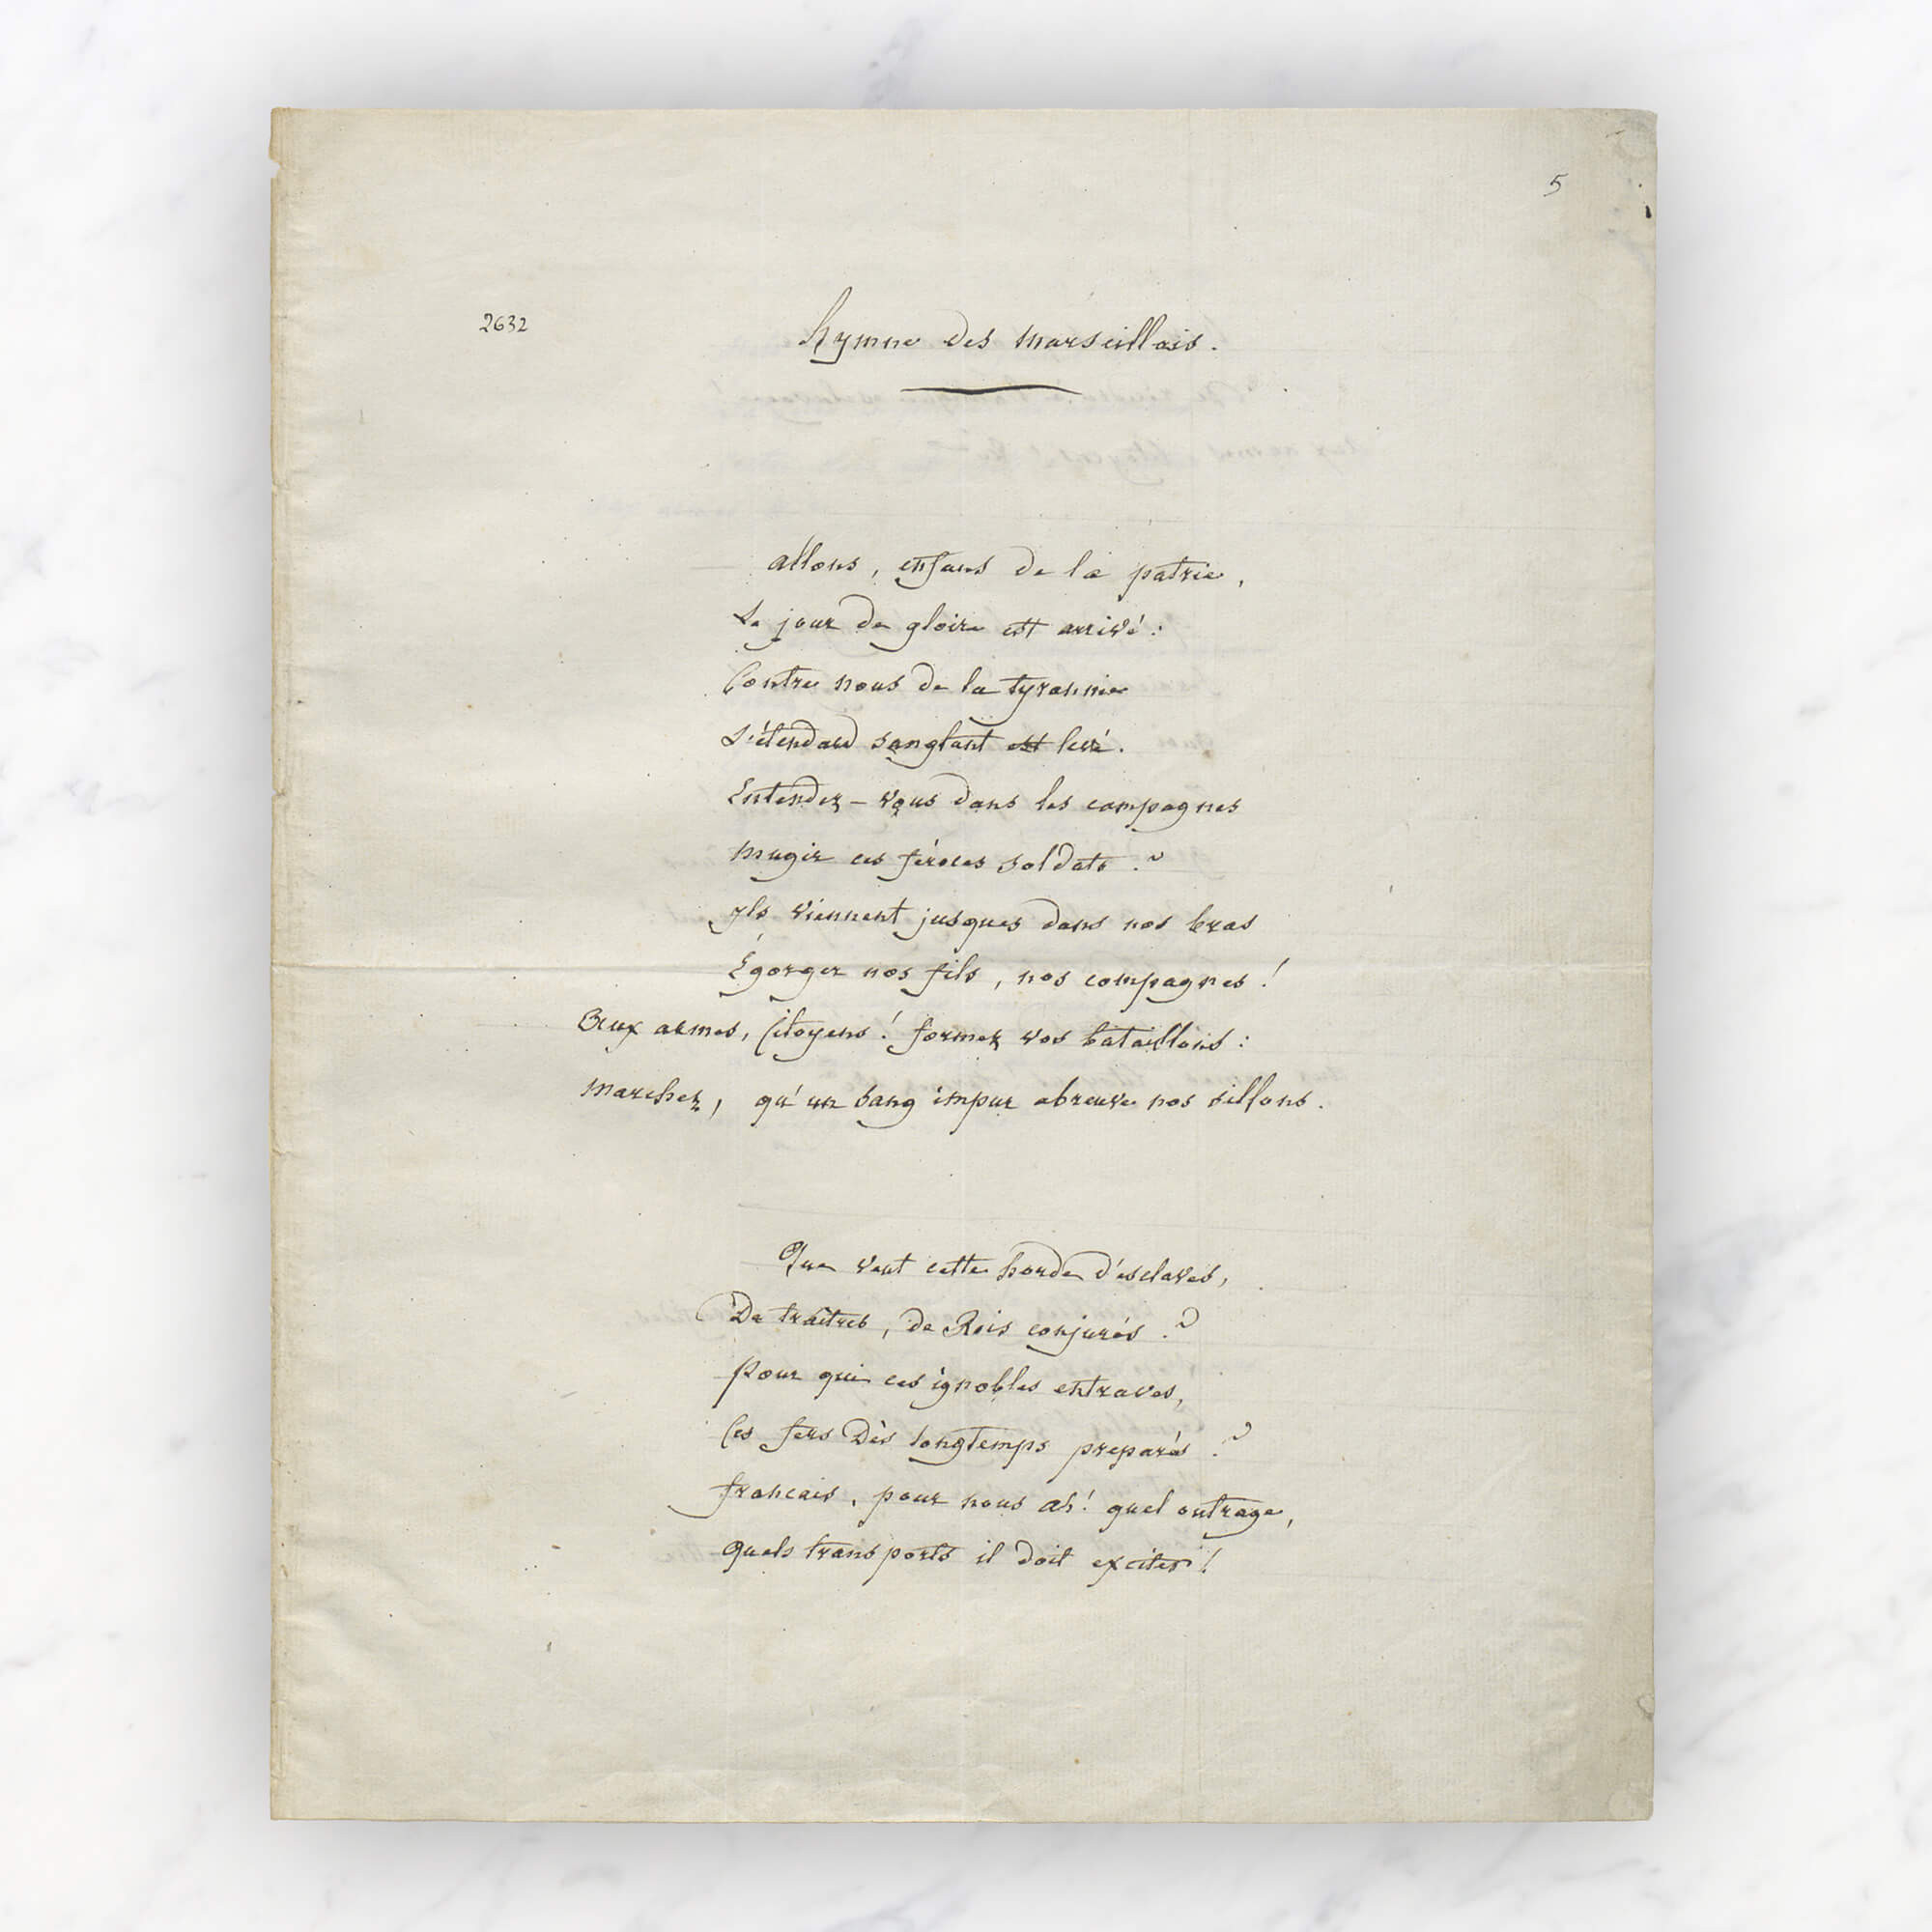 5
2632
hymne des marseillois.
allons, enfans de la patrie,
Le jour de gloire est arrivé :
Contre nous de la tyrannie
L'étendard sanglant est levé.
Entendez-vous dans les campagnes
mugir ces féroces soldats ?
yls viennent jusques dans nos bras
Égorger nos fils, nos compagnes !
Aux armes, Citoyens ! formez vos bataillons :
marchez, qu'un sang impur abreuve nos sillons.
Que veut cette horde d'esclaves,
De traîtres, de Rois conjurés ?
Pour qui ces ignobles entraves,
Ces fers Dès longtemps preparés ?
francais, pour nous ah! quel outrage,
quels transports il doit exciter !